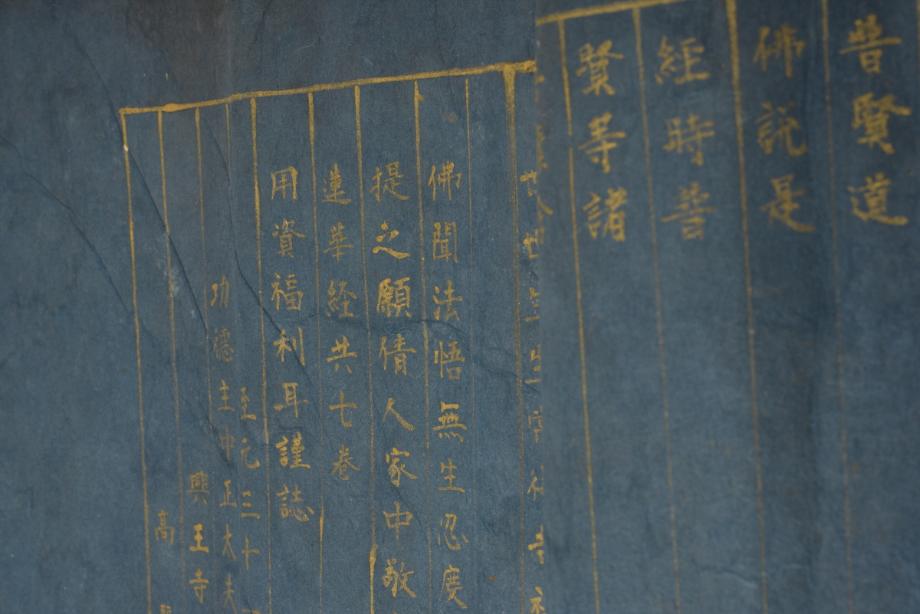 普賢道
佛說是
經時普
賢等諸
佛聞法悟無生忍度
提之願倩人家中敬
蓮華経共七卷
用資福利耳謹誌
至元三十
功德主中正大夫
興王寺
高